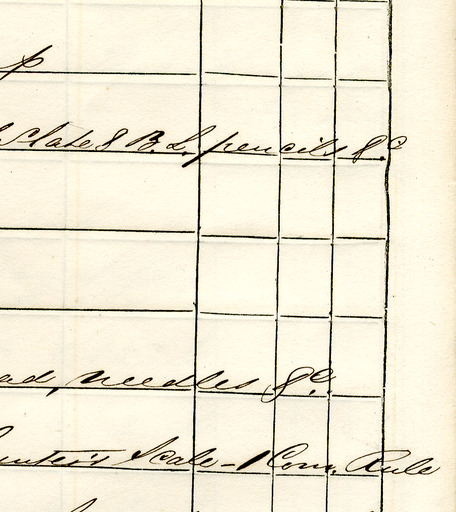 p
Slate & B.L. pencils &c
ad, needles &c.
unter's Scale - 1 Com. Rule